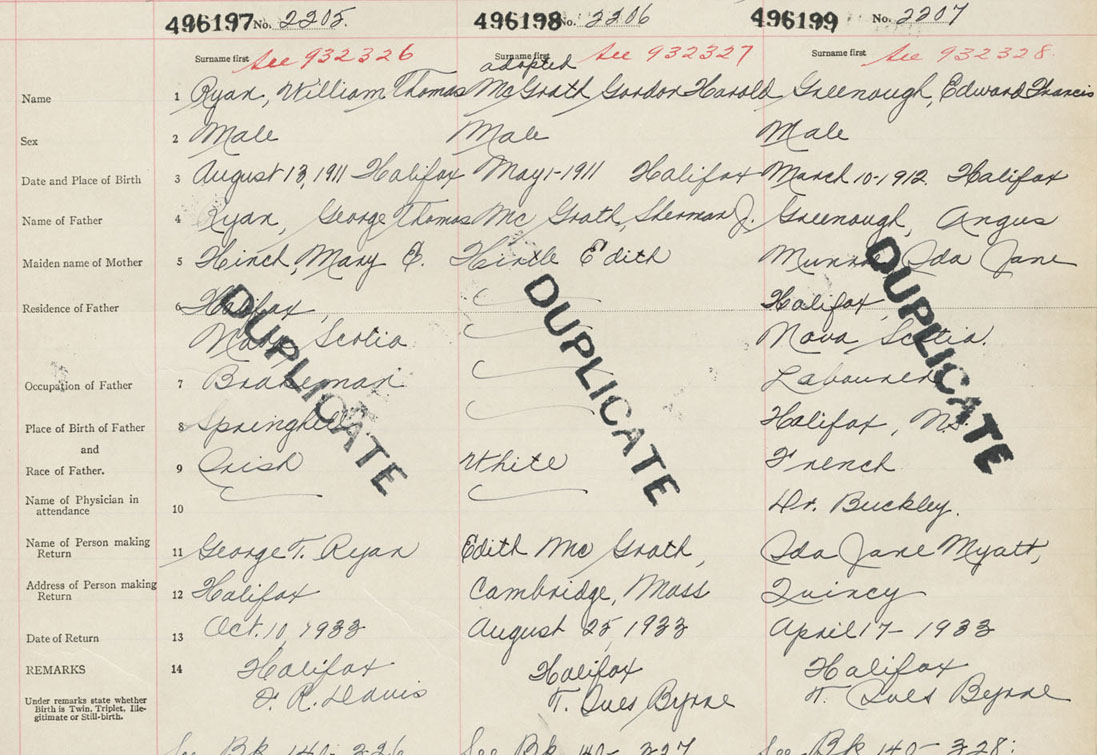 496197 No. 2205. 496198 No. 2206 496199 No. 2207
Surname first See 932326 Surname first See 932327 Surname first See 932328
adopted
Name 1 Ryan, William Thomas McGrath, Gordon Harold Greenough, Edward Francis
Sex 2 Male Male Male
Date and Place of Birth 3 August 13, 1911 Halifax May 1-1911 Halifax March 10-1912. Halifax
Name of Father 4 Ryan, George Thomas Mc Grath, Sherman J. Greenough, Angus
Maiden name of Mother 5 Hinch, Mary E. Hirtle Edith Munro Ida Jane
Residence of Father 6 Halifax, Halifax,
Nova Scotia Nova Scotia.
Occupation of Father 7 Brakeman Labourer
Place of Birth of Father 8 Springhill Halifax, N.S
and
Race of Father. 9 Irish White French
Name of Physician in
attendance 10 Dr. Buckley.
Name of Person making
Return 11 George T. Ryan Edith Mc Grath, Ida Jane Myatt,
Address of Person making
Return 12 Halifax Cambridge, Mass Quincy
Date of Return 13 Oct. 10, 1933 August 25, 1933 April 17- 1933
REMARKS 14 Halifax Halifax Halifax
Under remarks state whether
Birth is Twin, Triplet, Ille-
gitimate or Still-birth.
F. R. Davis T. Ives Byrne T. Ives Byrne
See Bk 140- 326 See Bk 140- 327 See Bk 140- 328.
DUPLICATE DUPLICATE DUPLICATE